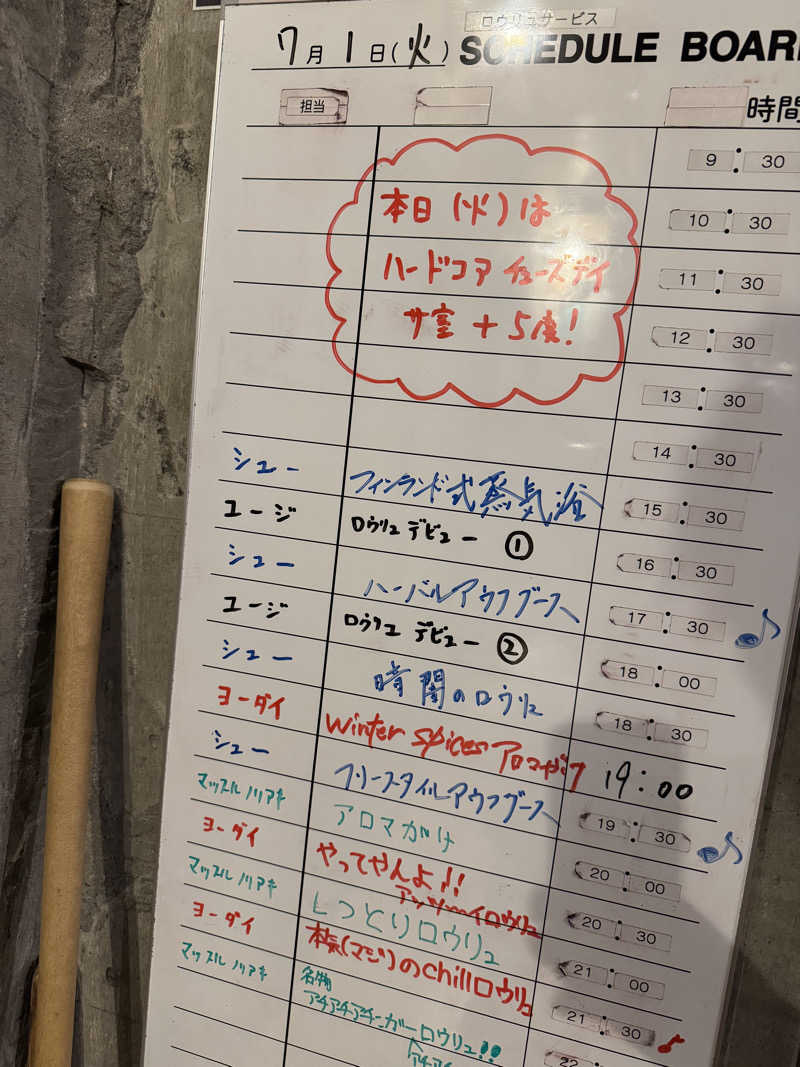 ロウリュサービス
7月1日(火) SCHEDULE BOAR
担当 時間
9:30
本日(火)は 10:30
ハードコアチューズデイ 11:30
サ室+5度! 12:30
13:30
14:30
シュー フィンランド式蒸気浴 15:30
ユージ ロウリュデビュー ① 16:30
シュー ハーバルアウフグース 17:30 ♪
ユージ ロウリュデビュー ② 18:00
シュー 暗闇のロウリュ 18:30
ヨーダイ winter spices アロマがけ 19:00
シュー フリースタイルアウフグース 19:30 ♪
マッスルノリアキ アロマがけ 20:00
ヨーダイ やってやんよ!! アッツーイロウリュ 20:30
マッスルノリアキ しっとりロウリュ 21:00
ヨーダイ 本気(マジ)のchillロウリュ 21:30 ♪
マッスルノリアキ 名物 アチアチアチーガーロウリュ!! 22: